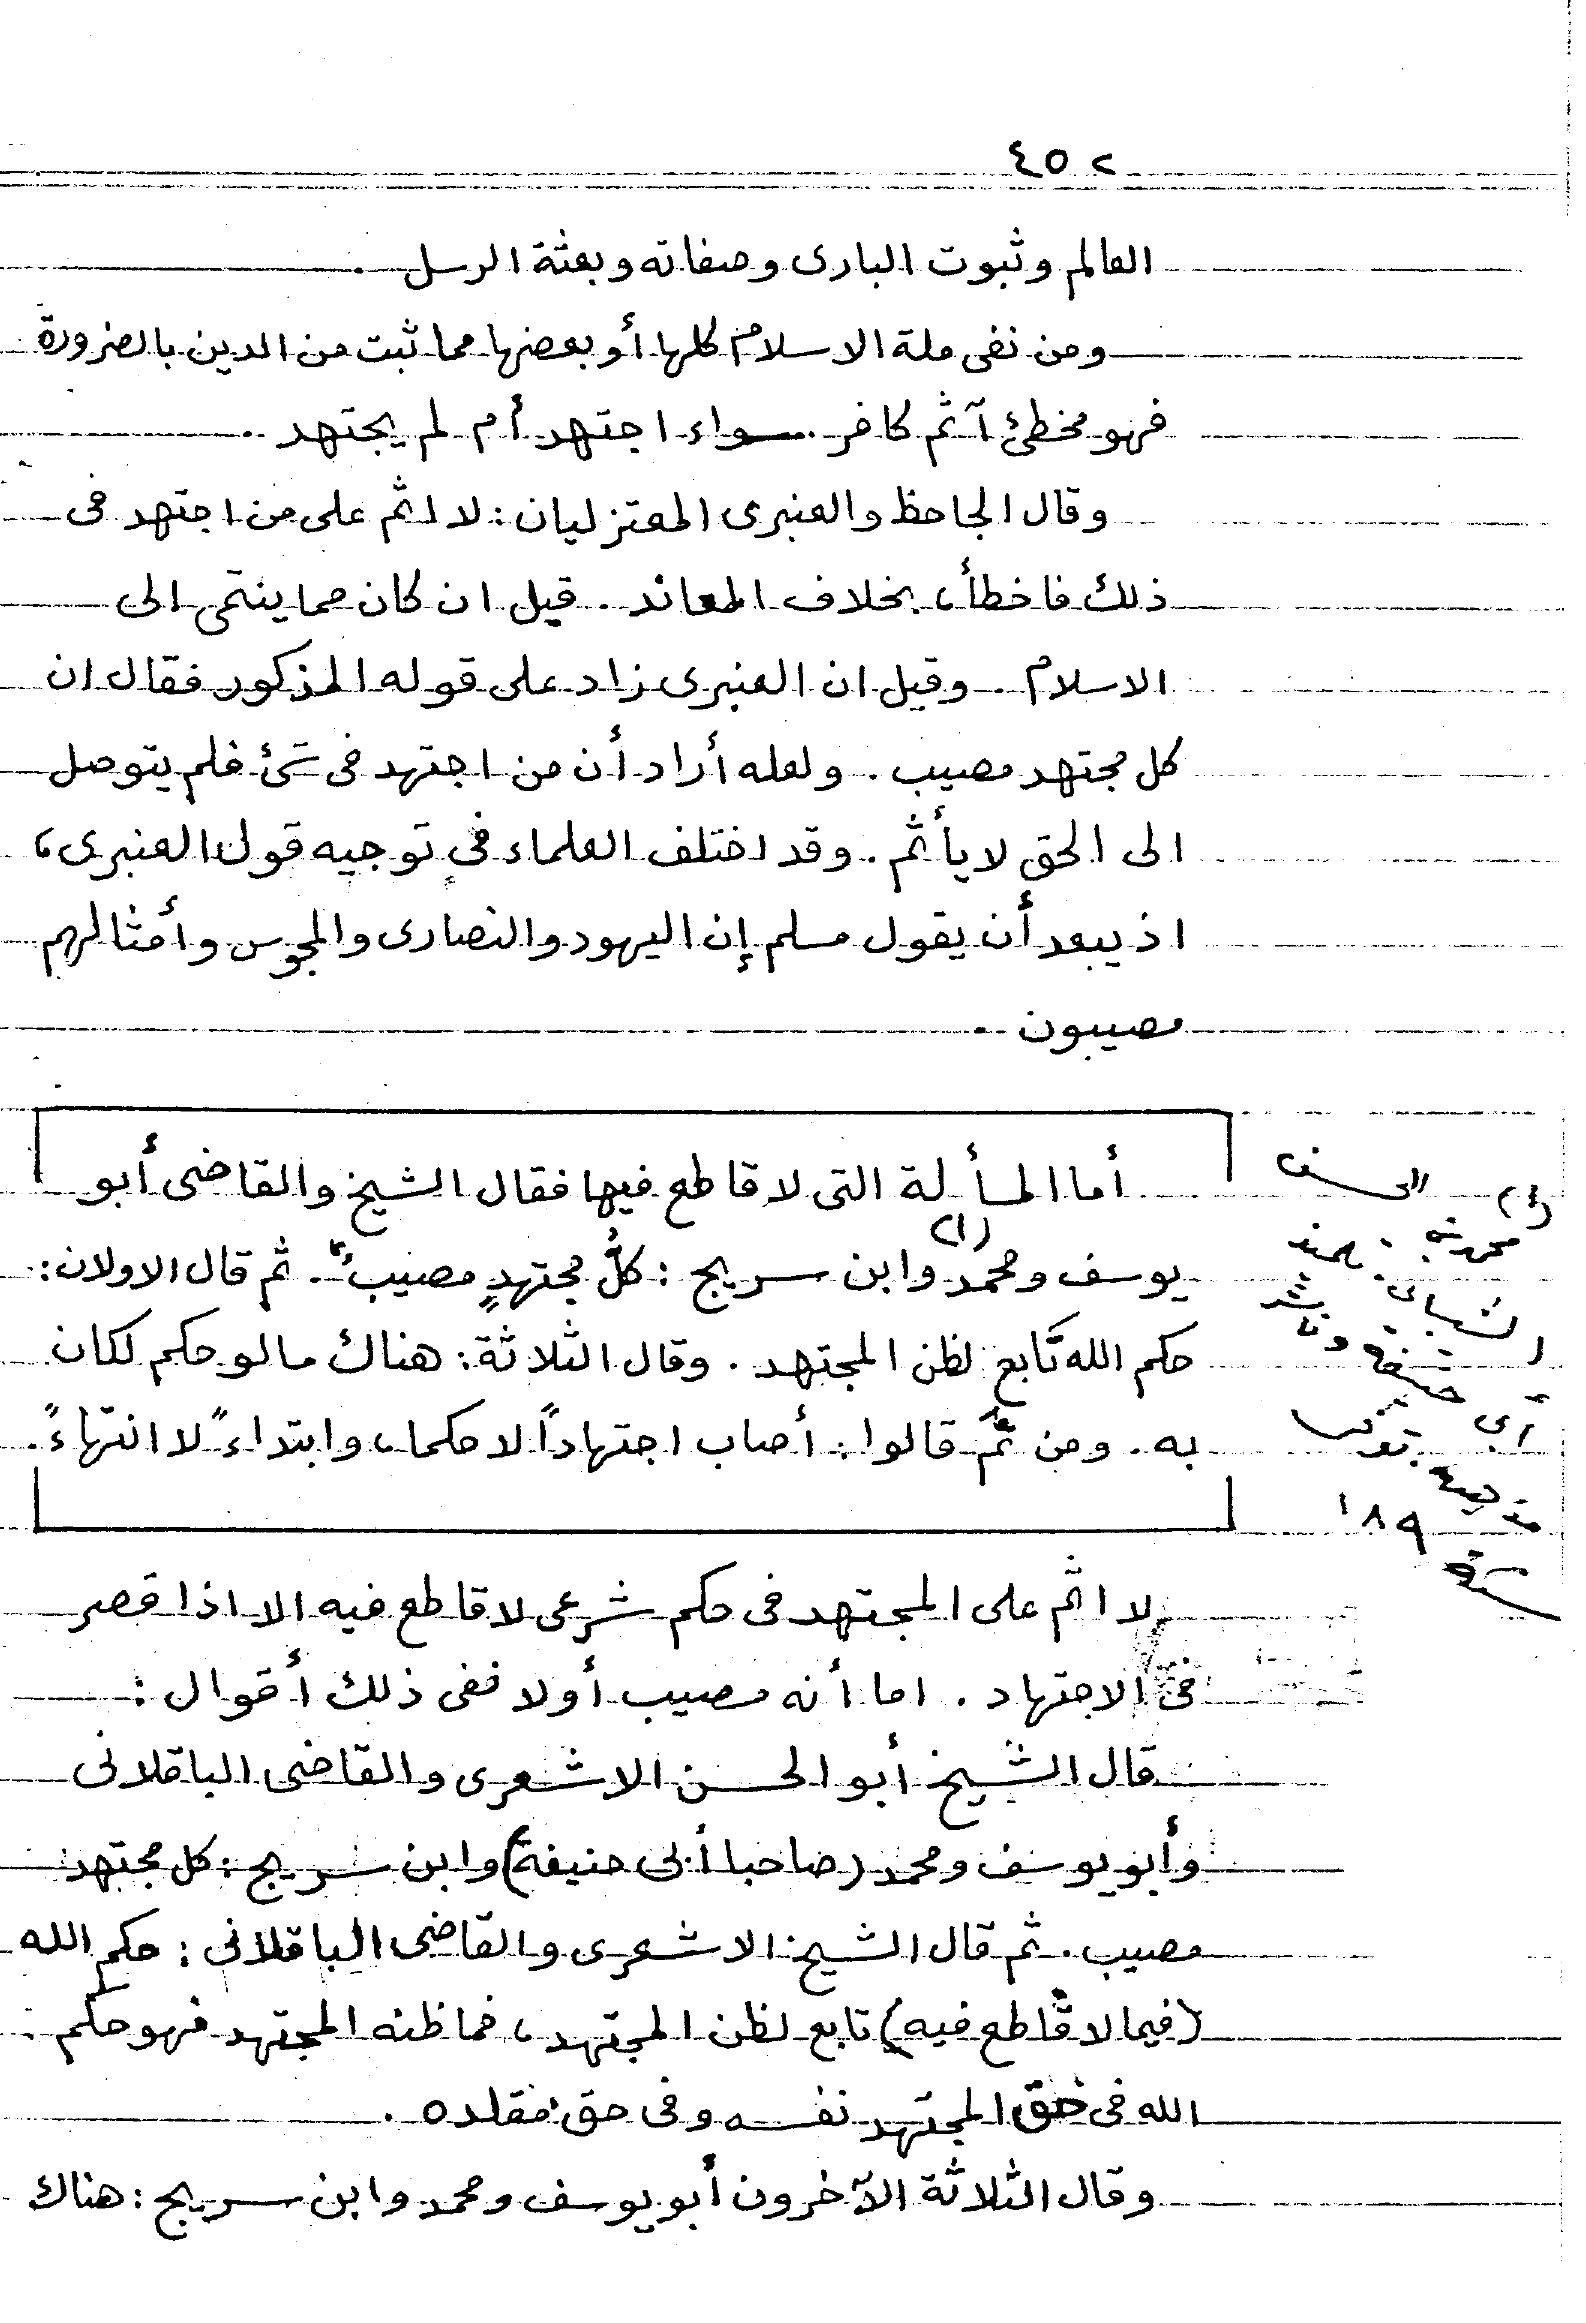 ٤٥٢
العالم وثبوت البارى وصفاته وبعثة الرسل .
ومن نفى ملة الاسلام كلها أو بعضها مما ثبت من الدين بالضرورة
فهو مخطئ آثم كافر . سواء اجتهد أم لم يجتهد .
وقال الجاحظ والعنبرى المعتزليان : لا اثم على من اجتهد فى
ذلك فاخطأ ، بخلاف المعاند . قيل ان كان مما ينتمى الى
الاسلام . وقيل ان العنبرى زاد على قوله المذكور فقال ان
كل مجتهد مصيب . ولعله أراد أن من اجتهد فى شئ فلم يتوصل
الى الحق لا يأثم . وقد اختلف العلماء فى توجيه قول العنبرى ،
اذ يبعد أن يقول مسلم إن اليهود والنصارى والمجوس وأمثالهم
مصيبون .
أما المسألة التى لا قاطع فيها فقال الشيخ والقاضى أبو
يوسف ومحمد (١) وابن سريج : كلُّ مجتهدٍ مصيبٌ . ثم قال الاولان :
حكم الله تابع لظن المجتهد . وقال الثلاثة : هناك ما لو حكم لكان
به . ومن ثَمَّ قالوا : أصاب اجتهاداً لا حكما ، وابتداءً لا انتهاءً .
(١) الحسن
محمد بن
الشيبانى
أبى حنيفة وناشر
مذهبه توفى
سنة ١٨٩
لا اثم على المجتهد فى حكم شرعى لا قاطع فيه الا اذا قصر
فى الاجتهاد . اما أنه مصيب أو لا ففى ذلك أقوال :
قال الشيخ أبو الحسن الاشعرى والقاضى الباقلانى
وأبو يوسف ومحمد (صاحبا أبى حنيفة) وابن سريج : كل مجتهد
مصيب . ثم قال الشيخ الاشعرى والقاضى الباقلانى : حكم الله
(فيما لا قاطع فيه) تابع لظن المجتهد ، فما ظنه المجتهد فهو حكم
الله فى حق المجتهد نفسه وفى حق مقلده .
وقال الثلاثة الآخرون أبو يوسف ومحمد وابن سريج : هناك